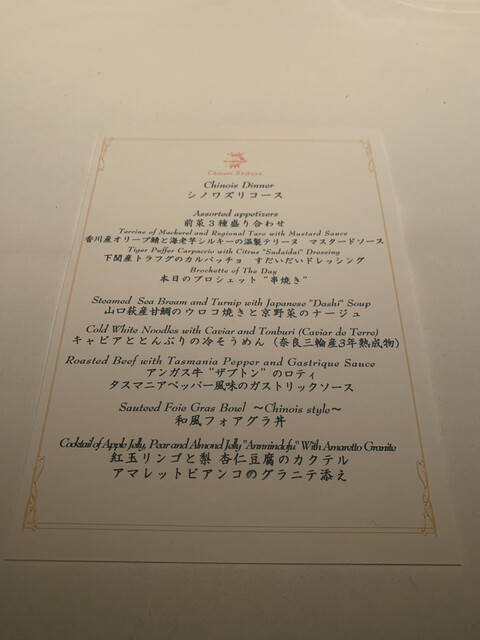 Chinois Shibuya
Chinois Dinner
シノワズリコース
Assorted appetizers
前菜３種盛り合わせ
Terrine of Mackerel and Regional Taro with Mustard Sauce
香川産オリーブ鯖と海老芋シルキーの温製テリーヌ マスタードソース
Tiger Puffer Carpaccio with Citrus "Sudaidai" Dressing
下関産トラフグのカルパッチョ すだいだいドレッシング
Brochette of The Day
本日のブロシェット“串焼き”
Steamed Sea Bream and Turnip with Japanese "Dashi" Soup
山口萩産甘鯛のウロコ焼きと京野菜のナージュ
Cold White Noodles with Caviar and Tonburi (Caviar de Terre)
キャビアととんぶりの冷そうめん（奈良三輪産3年熟成物）
Roasted Beef with Tasmania Pepper and Gastrique Sauce
アンガス牛“ザブトン”のロティ
タスマニアペッパー風味のガストリックソース
Sauteed Foie Gras Bowl ～Chinois style～
和風フォアグラ丼
Cocktail of Apple Jelly, Pear and Almond Jelly "Annnindofu" With Amaretto Granite
紅玉リンゴと梨 杏仁豆腐のカクテル
アマレットビアンコのグラニテ添え